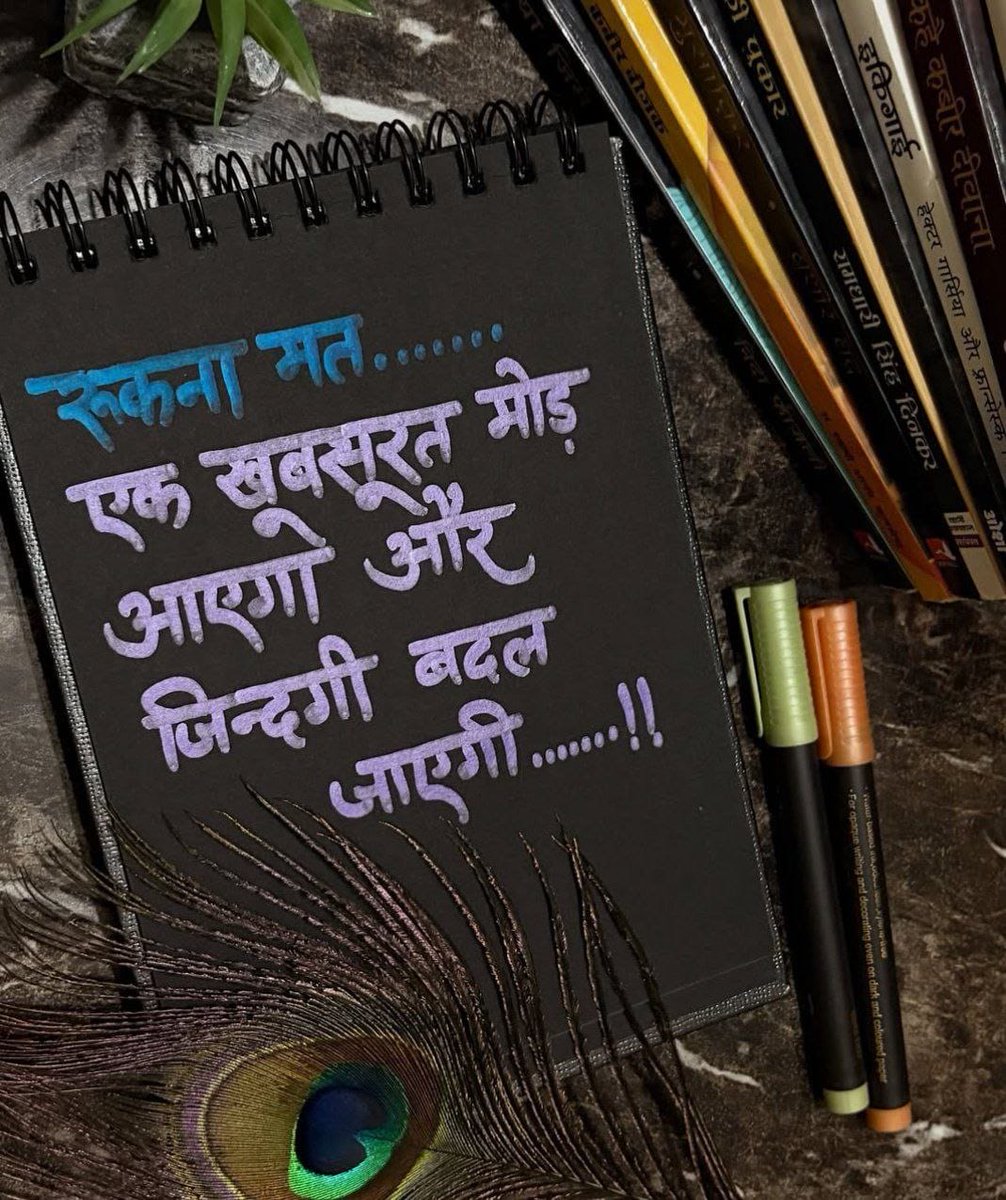 रूकना मत.......
एक खूबसूरत मोड़
आएगा और
जिन्दगी बदल
जाएगी.......!!
हुंकार
रामधारी सिंह दिनकर
इकिगाई
हेक्टर गार्सिया और फ्रान्सेस्क
कहै कबीर दीवाना
For opaque writing and decorating even on dark and coloured paper